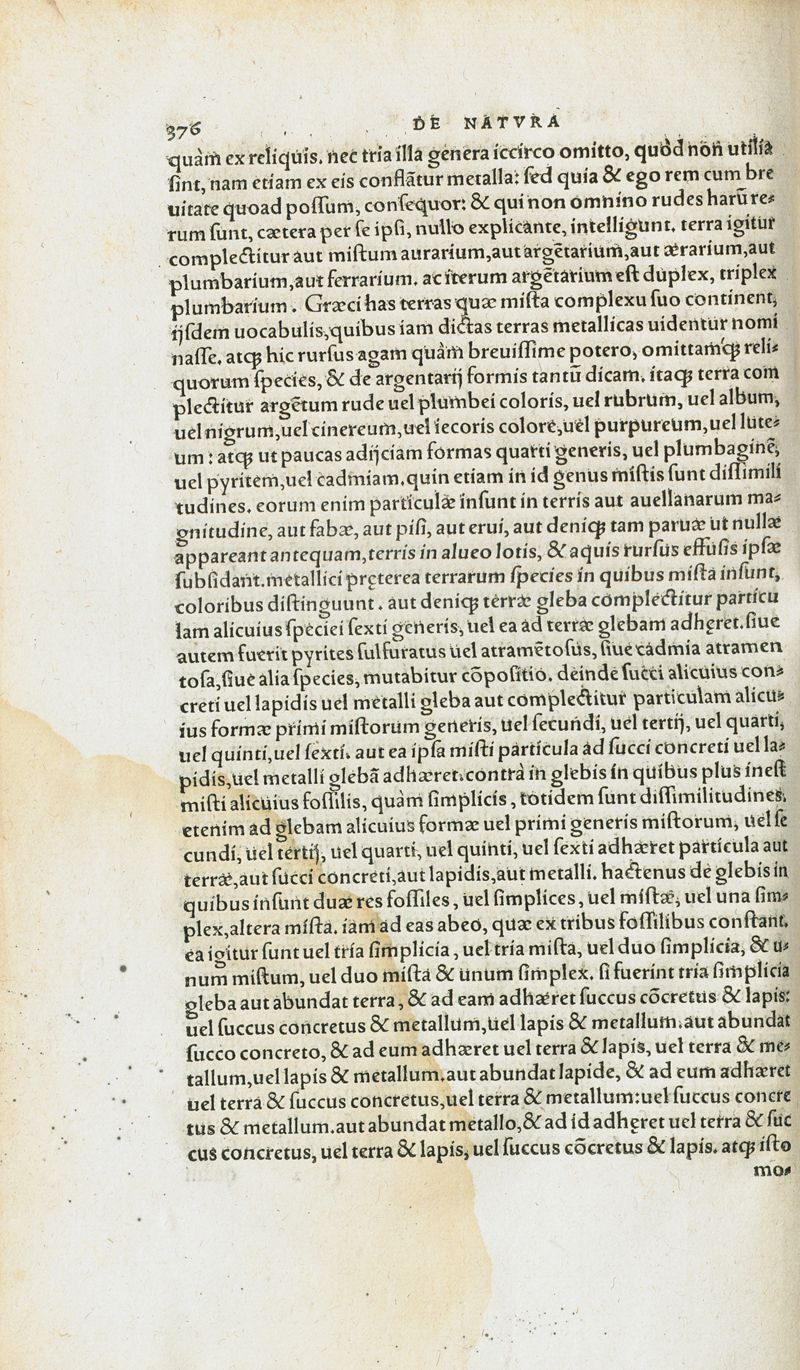 376 DE NATVRA
quàm ex reliquis. nec tria illa genera iccirco omitto, quòd non utilia
ſint, nam etiam ex eis conflãtur metalla: ſed quia & ego rem cum bre
uitate quoad poſſum, conſequor: & qui non omnino rudes harũ re⸗
rum ſunt, cætera per ſe ipſi, nullo explicante, intelligunt. terra igitur
complectitur aut miſtum aurarium,aut argẽtarium,aut ærarium,aut
plumbarium,aut ferrarium. ac iterum argẽtarium eſt duplex, triplex
plumbarium. Græci has terras quæ miſta complexu ſuo continent,
ijſdem uocabulis,quibus iam dictas terras metallicas uidentur nomi
naſſe. atqꝫ hic rurſus agam quàm breuiſſime potero, omittamqꝫ reli⸗
quorum ſpecies, & de argentarij formis tantũ dicam. itaqꝫ terra com
plectitur argẽtum rude uel plumbei coloris, uel rubrum, uel album,
uel nigrum,uel cinereum,uel iecoris colore,uel purpureum,uel lute⸗
um: atqꝫ ut paucas adijciam formas quarti generis, uel plumbaginẽ,
uel pyritem,uel cadmiam.quin etiam in id genus miſtis ſunt diſſimili
tudines. eorum enim particulæ inſunt in terris aut auellanarum ma⸗
gnitudine, aut fabæ, aut piſi, aut erui, aut deniqꝫ tam paruæ ut nullæ
appareant antequam,terris in alueo lotis, & aquis rurſus effuſis ipſæ
ſubſidant.metallici pręterea terrarum ſpecies in quibus miſta inſunt,
coloribus diſtinguunt. aut deniqꝫ terræ gleba complectitur particu
lam alicuius ſpeciei ſexti generis, uel ea ad terræ glebam adhęret.ſiue
autem fuerit pyrites ſulfuratus uel atramẽtoſus, ſiue cadmia atramen
toſa,ſiue alia ſpecies, mutabitur cõpoſitio. deinde ſucci alicuius con⸗
creti uel lapidis uel metalli gleba aut complectitur particulam alicu⸗
ius formæ primi miſtorum generis, uel ſecundi, uel tertij, uel quarti,
uel quinti,uel ſexti. aut ea ipſa miſti particula ad ſucci concreti uel la⸗
pidis,uel metalli glebã adhæret.contrà in glebis in quibus plus ineſt
miſti alicuius foſſilis, quàm ſimplicis, totidem ſunt diſſimilitudines.
etenim ad glebam alicuius formæ uel primi generis miſtorum, uel ſe
cundi, uel tertij, uel quarti, uel quinti, uel ſexti adhæret particula aut
terræ,aut ſucci concreti,aut lapidis,aut metalli. hactenus de glebis in
quibus inſunt duæ res foſſiles, uel ſimplices, uel miſtæ, uel una ſim⸗
plex,altera miſta. iam ad eas abeo, quæ ex tribus foſſilibus conſtant.
ea igitur ſunt uel tria ſimplicia, uel tria miſta, uel duo ſimplicia, & u⸗
num miſtum, uel duo miſta & unum ſimplex. ſi fuerint tria ſimplicia
gleba aut abundat terra, & ad eam adhæret ſuccus cõcretus & lapis:
uel ſuccus concretus & metallum,uel lapis & metallum.aut abundat
ſucco concreto, & ad eum adhæret uel terra & lapis, uel terra & me⸗
tallum,uel lapis & metallum.aut abundat lapide, & ad eum adhæret
uel terra & ſuccus concretus,uel terra & metallum:uel ſuccus concre
tus & metallum.aut abundat metallo,& ad id adhęret uel terra & ſuc
cus concretus, uel terra & lapis, uel ſuccus cõcretus & lapis. atqꝫ iſto
mo⸗